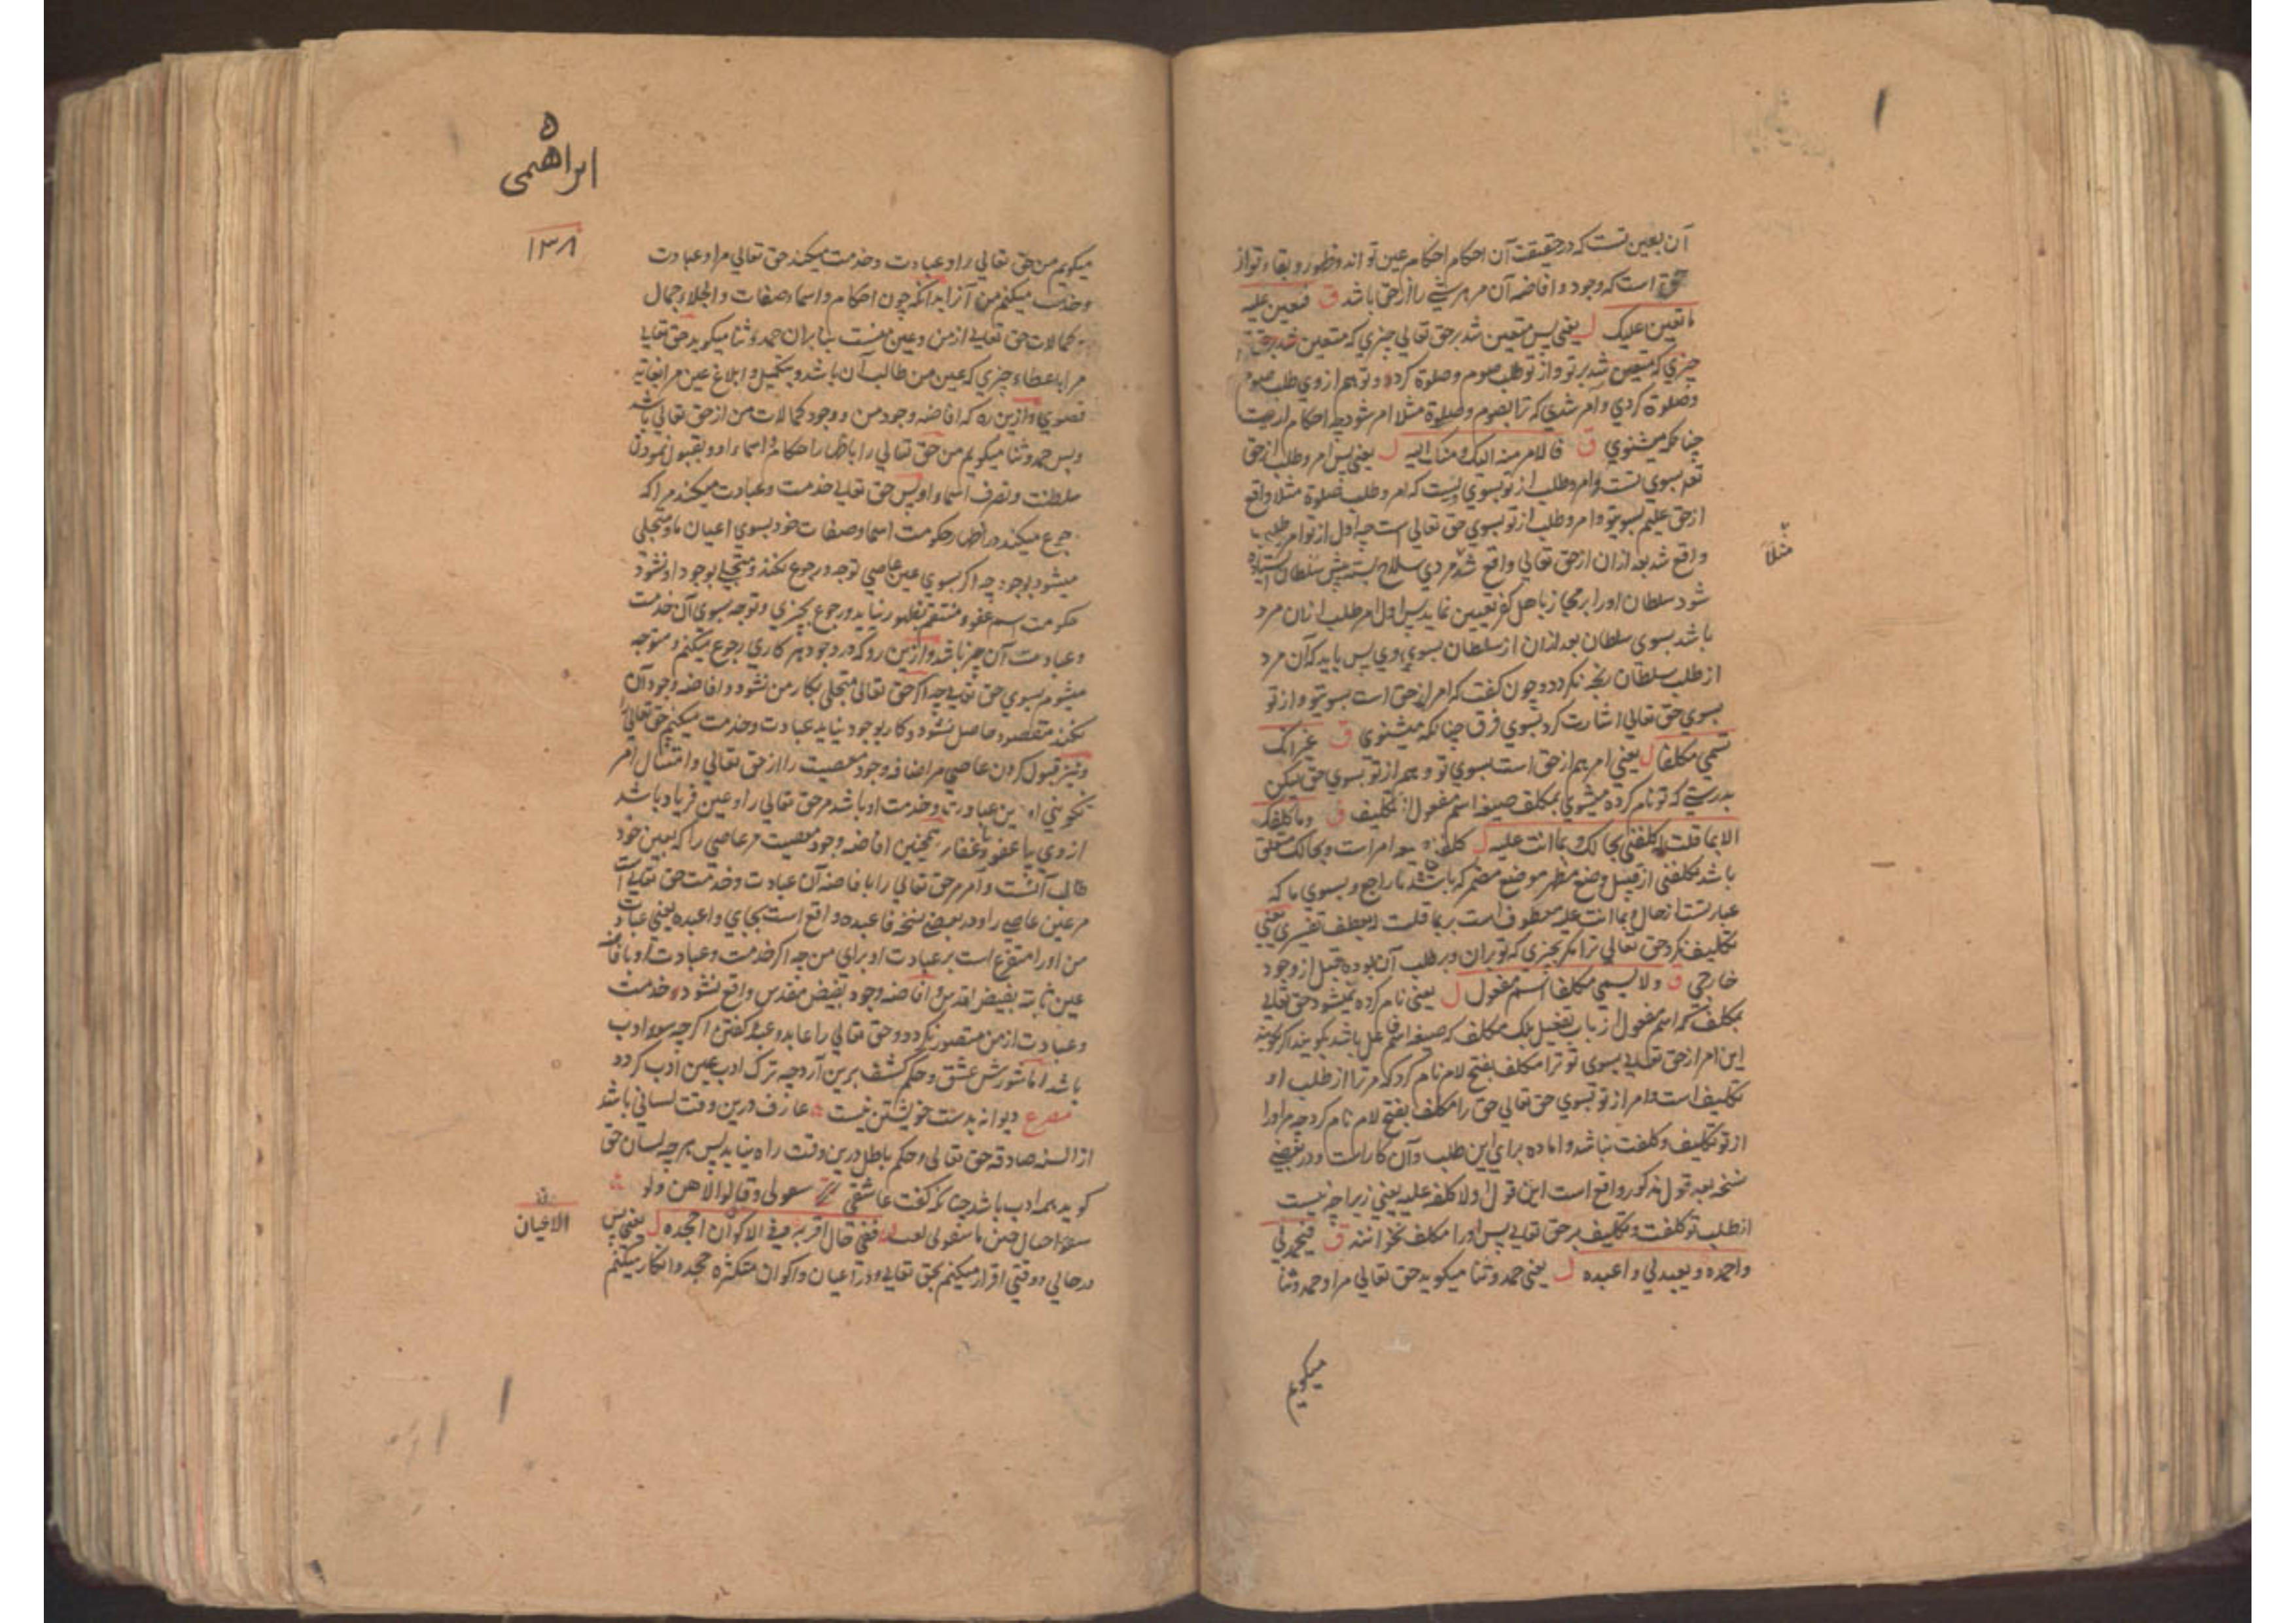 آن بعین تست که در حقیقت آن احکام احکام عین تو اند و ظهور و بقاء تو از
حق است که وجود و افاضه آن مر هر شی را از حق باشد ق فتعین علیه
ما تعین علیک ل یعنی پس متعین شد بر حق تعالی چیزی که متعین شد بر حق
چیزی که متعین شد بر تو و از تو طلب صوم و صلوة کرد و تو هم از وی طلب صوم
و صلوة کردی و امر شدی که ترا بصوم و صلوة مثلا امر شود چه احکام از تست
چنانکه میشنوی ق فالامر منه الیک و منک الیه ل یعنی پس امر و طلب از حق
بسوی تست و امر و طلب از تو بسوی که امر و طلب صلوة مثلا واقع
از حق علیم بسوی تو و امر و طلب از تو بسوی حق تعالی است چه اول از تو امر و طلب
واقع شد بعد از ان از حق تعالی واقع شد مردی سلاح بسته پیش سلطان استاده
مثلا
شود سلطان او را بر محاربه اهل کفر تعیین نماید پس اول امر طلب از ان مرد
باشد بسوی سلطان بعد از ان از سلطان بسوی وی پس باید که آن مرد
از طلب سلطان رنجه نکردد و چون کفت که امر از حق است بسوی تو و از تو
بسوی حق تعالی اشارت کرد بسوی فرق چنانکه میشنوی ق غیر انک
تسمی مکلفا ل یعنی امر هم از حق است بسوی تو و هم از تو بسوی حق لیکن
بدرستی که تو نام کرده میشوی بمکلف صیغه اسم مفعول از تکلیف ق وما کلفک
الا بما قلت له کلفنی بحالک و بما انت علیه ل کلفنی صیغه امر است و بحالک متعلق
باشد بکلفنی از قبیل وضع مظهر موضع مضمر که باشد تا راجع و بسوی ما که
عبارتست از حال و بما انت علیه معطوف است بر بما قلت له بعطف تفسیری یعنی
تکلیف نکرد حق تعالی ترا مکر بچیزی که تو بران و بر طلب آن بوده قبل از وجود
خارجی ق ولا یسمی مکلفا اسم مفعول ل یعنی نام کرده نمیشود حق تعالی
بمکلف که اسم مفعول از باب تفعیل بلکه مکلف که صیغه اسم فاعل باشد بکویند اکر کویند
این امر از حق تعالی بسوی تو ترا مکلف بفتح لام نام کرد که مر ترا از طلب او
تکلیف است و امر از تو بسوی حق تعالی حق را مکلف بفتح لام نام نکرد چه مر او را
از تو تکلیف و کلفت نباشد و اماده برای این طلب و آن کار است و در بعضی
نسخه بعد قول مذکور واقع است این قول اولا کلفه علیه یعنی زیرا چه نیست
از طلب تو کلفت و تکلیف بر حق تعالی پس او را مکلف نخوانند ق فیحمدنی
واحمده ویعبدنی واعبده ل یعنی حمد و ثنا میکوید حق تعالی مرا و حمد و ثنا
میکویم
۵
ابراهیمی
۱۳۸
میکویم من حق تعالی را و عبادت و خدمت میکند حق تعالی مرا و عبادت
و خدمت میکنم من آنرا بدانکه چون احکام و اسما و صفات و انجلاء جمال
کمالات حق تعالی از من و عین منست بنا بران حمد و ثنا میکوید حق تعالی
مرا باعطاء چیزی که عین من طالب آن باشد و بتکمیل و ابلاغ عین مرا بغایه
قصوی و ازین ره که افاضه وجود من و وجود کمالات من از حق تعالی باشد
و پس حمد و ثنا میکویم من حق تعالی را باظهار احکام و اسماء او و بقبول نمودن
سلطنت و تصرف اسماء او پس حق تعالی خدمت و عبادت میکند مرا که
رجوع میکند در اظهار حکومت اسما و صفات خود بسوی اعیان ما و متجلی
میشود بوجود چه اکر بسوی عین عاصی توجه و رجوع نکند و متجلی بوجود او نشود
حکومت اسم عفو و منتقم بظهور نیاید و رجوع بچیزی و توجه بسوی آن خدمت
و عبادت آن چیز باشد و ازین رو که در وجود هر کاری رجوع میکنم و متوجه
میشوم بسوی حق تعالی چه اکر حق تعالی متجلی بکار من نشود و افاضه وجود آن
نکند مقصود حاصل نشود و کار بوجود نیاید عبادت و خدمت میکنم حق تعالی را
و نیز قبول کردن عاصی مر اضافه وجود معصیت را از حق تعالی و امتثال امر
تکوینی او عین عبادت و خدمت او باشد مر حق تعالی را و عین فریاد باشد
از وی یا عفو یا غفار همچنین افاضه وجود معصیت مر عاصی را که بعین خود
طالب آنست و آمر مر حق تعالی را بافاضه آن عبادت و خدمت حق تعالی است
مر عین عاصی را و در بعضی نسخه فاعبده واقع است بجای واعبده یعنی عبادت
من او را متفرع است بر عبادت او برای من چه اکر خدمت و عبادت او بافاضه
عین ثابته بفیض اقدس و افاضه وجود بفیض مقدس واقع نشود خدمت
و عبادت از من متصور نکردد و حق تعالی را عابد و عبد کفتن اکر چه سوء ادب
باشد اما شورش عشق و حکم کشف برین آرد چه ترک ادب عین ادب کردد
مصرع دیوانه بدست خویشتن نیست عارف درین وقت لسانی باشد
از السنه صادقه حق تعالی و حکم باطل درین وقت راه نیابد پس هر چه لسان حق
کوید همه ادب باشد چنانکه کفت عاشقی وقالوا لا
ففی حال اقر به وفی الاکوان اجحده ل یعنی پس
الاعیان
در حالی و وقتی اقرار میکنم بحق تعالی و در اعیان و اکوان متکثره جحد و انکار میکنم